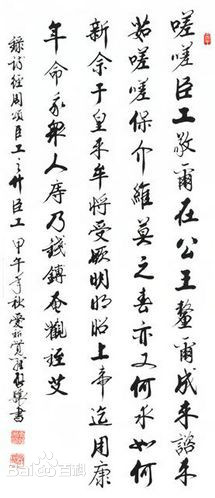 嗟嗟臣工敬爾在公王釐爾成来諮来
茹嗟嗟保介維莫之春亦又何求如何
新畬于皇来牟將受厥明明昭上帝迄用康
年命我眾人庤乃錢鎛奄觀銍艾
錄詩經周頌臣工之什臣工 甲午年秋 書
Bai百科